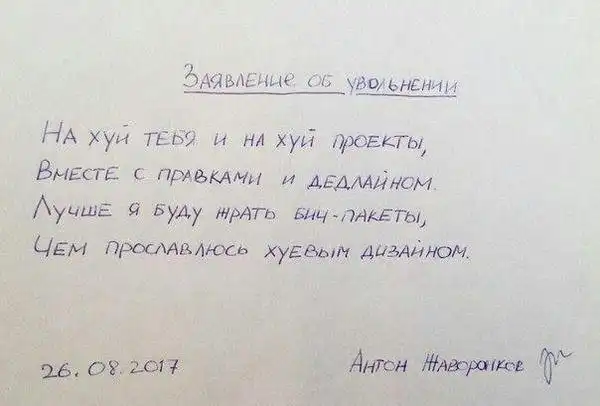 Заявление об увольнении
На хуй тебя и на хуй проекты,
Вместе с правками и дедлайном.
Лучше я буду жрать бич-пакеты,
Чем прославлюсь хуевым дизайном.
26.08.2017
Антон Жаворонков